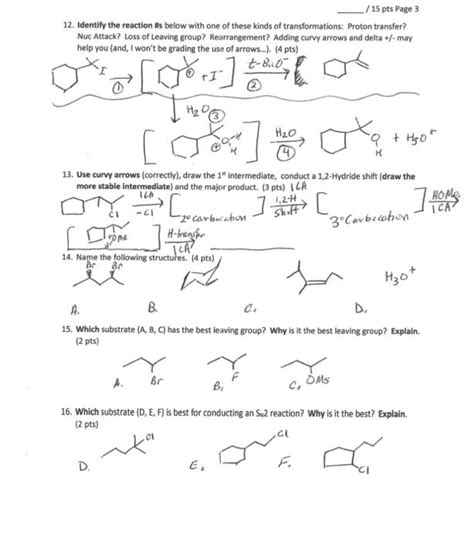 / 15 pts Page 3
12. Identify the reaction #s below with one of these kinds of transformations: Proton transfer?
Nuc Attack? Loss of Leaving group? Rearrangement? Adding curvy arrows and delta +/- may
help you (and, I won't be grading the use of arrows...). (4 pts)
I
①
⊕
+ I⁻
t-BuO⁻
②
H₂O ③
⊕
H
H
H₂O
④
O
H
+ H₃O⁺
13. Use curvy arrows (correctly), draw the 1st intermediate, conduct a 1,2-Hydride shift (draw the
more stable intermediate) and the major product. (3 pts) 1 CA
Cl
1CA
-Cl
2° Carbocation
1,2-H
Shift
3° Carbocation
HOMe
1CA
OMe
H-transfer
1CA
14. Name the following structures. (4 pts)
Br Br
H₃O⁺
A. B. C. D.
15. Which substrate (A, B, C) has the best leaving group? Why is it the best leaving group? Explain.
(2 pts)
A. Br
B. F
C. OMs
16. Which substrate (D, E, F) is best for conducting an SN2 reaction? Why is it the best? Explain.
(2 pts)
D. Cl
E. Cl
F. Cl